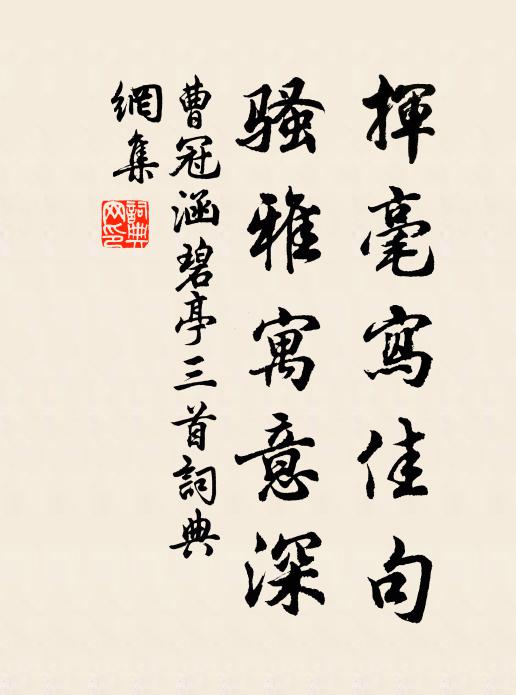 揮毫寫佳句
騷雅寓意深
曹冠涵碧亭三首詞典
網集
詞典網印